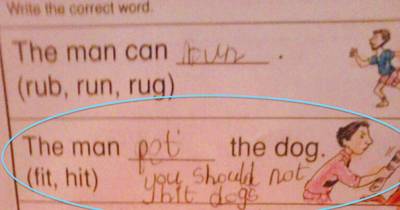 Write the correct word.
The man can run .
(rub, run, rug)
The man pot the dog.
(fit, hit) you should not
hit dogs